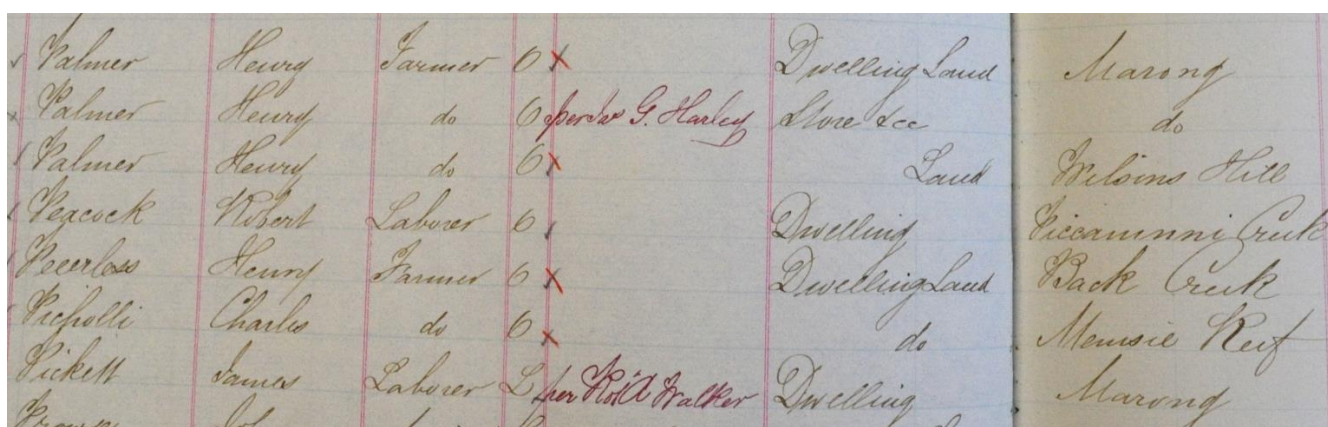 Palmer Henry Farmer O Dwelling Land Marong
Palmer Henry do O G. Harley Store &c do
Palmer Henry do O Land Wilsons Hill
Peacock Robert Laborer O Dwelling Piccaninni Creek
Peeerless Henry Farmer O Dwelling Land Back Creek
Charles do O do Memsie Reef
Pickett James Laborer L per Walker Dwelling Marong